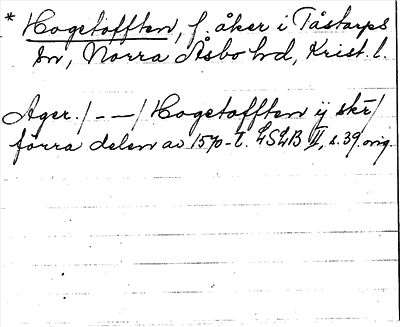 * Hogetofften, f. åker i Tåstarps
sn, Norra Åsbo hd, Krist. l.
Ager. /- - -/ Hogetofften ij skr̄/
förra delen av 1570-t. LSLB II, s. 39 orig.